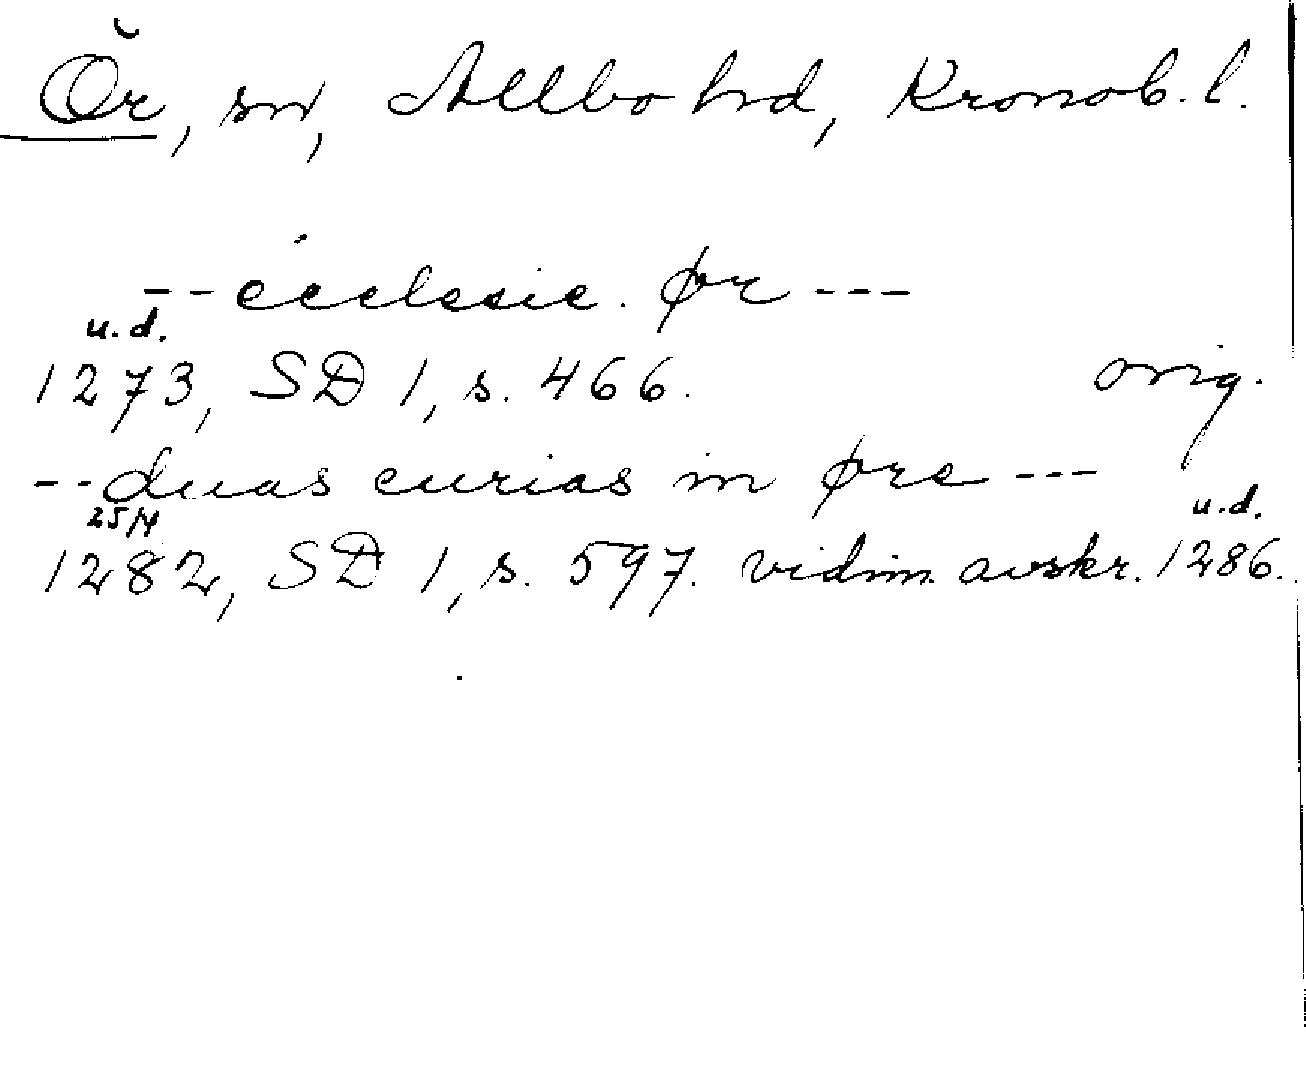 Ör, sn, Allbo hd, Kronob. l.
--ecclesie. ør---
u.d.
1273, SD 1, s. 466. orig.
--duas curias in øre---
25/4 u.d.
1282, SD 1, s. 597. vidim. avskr. 1286.